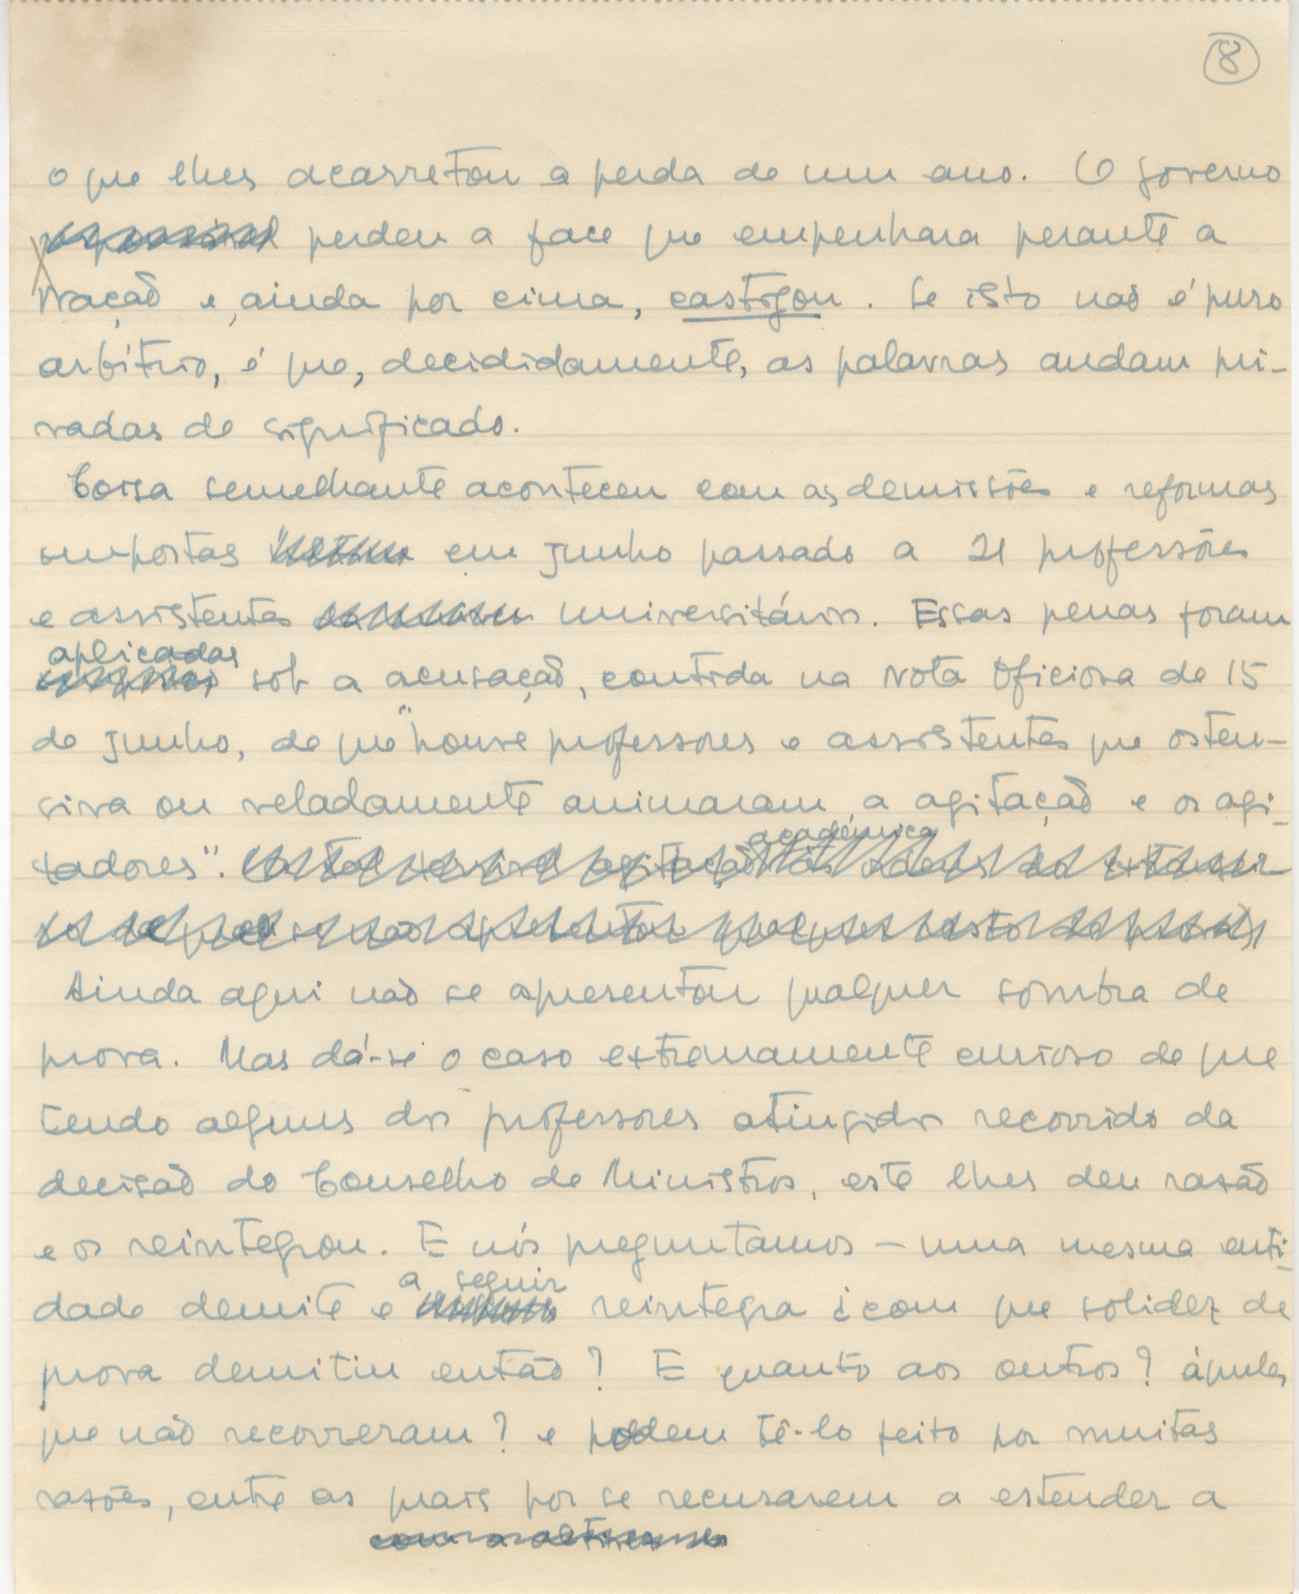 8
o que lhes acarretou a perda de um ano. O governo
perdeu a face que empenhara perante a
Nação e, ainda por cima, castigou. Se isto não é puro
arbítrio, é que, decididamente, as palavras andam pri-
vadas de significado.
Coisa semelhante aconteceu com as demissões e reformas
impostas em junho passado a 21 professôres
e assistentes universitários. Essas penas foram
aplicadas
sob a acusação, contida na Nota Oficiosa de 15
de Junho, de que "houve professores e assistentes que osten-
siva ou veladamente animaram a agitação e os agi-
tadores".
académica
Ainda aqui não se apresentou qualquer sombra de
prova. Mas dá-se o caso extremamente curioso de que
tendo alguns dos professores atingidos recorrido da
decisão do Conselho de Ministros, este lhes deu razão
e os reintegrou. E nós preguntamos – uma mesma enti-
a seguir
dade demite e reintegra ¿com que solidez de
prova demitiu então? E quanto aos outros? áqueles
que não recorreram? e podem tê-lo feito por muitas
razões, entre as quais por se recusarem a estender a